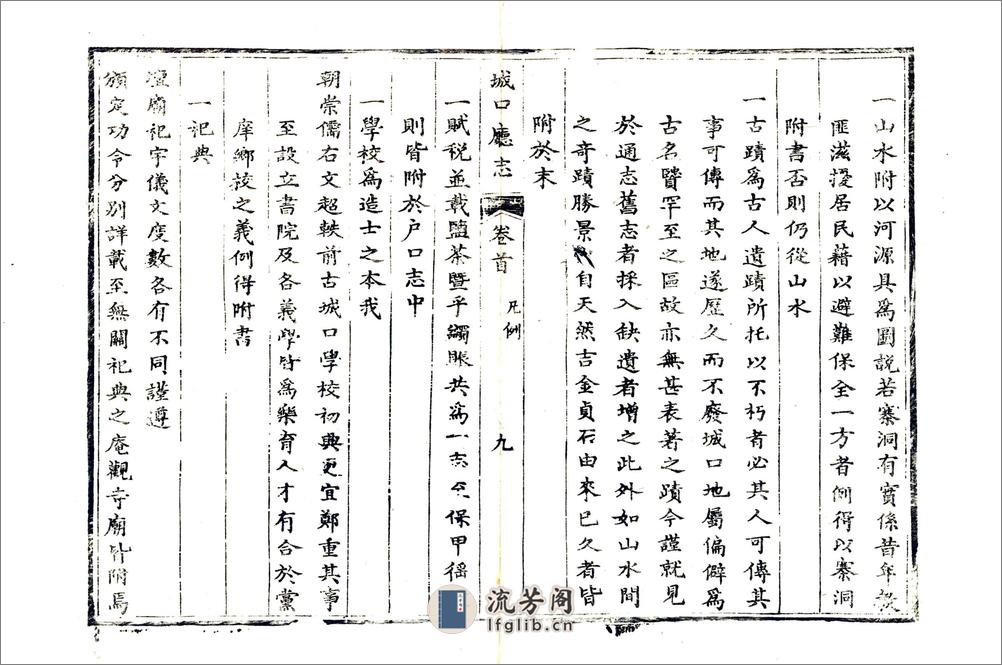 一山水附以河源具爲圖説若寨洞有實係昔年教
匪滋擾居民藉以避難保全一方者例得以寨洞
附書否則仍從山水
一古蹟爲古人遺蹟所托以不朽者必其人可傳其
事可傳而其地遂歷久而不廢城口地屬偏僻爲
古名賢罕至之區故亦無甚表著之蹟今謹就見
於通志舊志者採入缺遺者增之此外如山水間
之奇蹟勝景成自天然吉金貞石由來已久者皆
附於末
城口廳志
卷首
凡例
九
一賦税並載鹽茶暨乎蠲賑共爲一志至保甲徭
則皆附於户口志中
一學校爲造士之本我
朝崇儒右文超軼前古城口學校初興更宜鄭重其事
至設立書院及各義學皆爲樂育人才有合於黨
庠鄉校之義例得附書
一祀典
壇廟祀宇儀文度數各有不同謹遵
頒定功令分别詳載至無關祀典之庵觀寺廟皆附焉
流芳阁
lfglib.cn